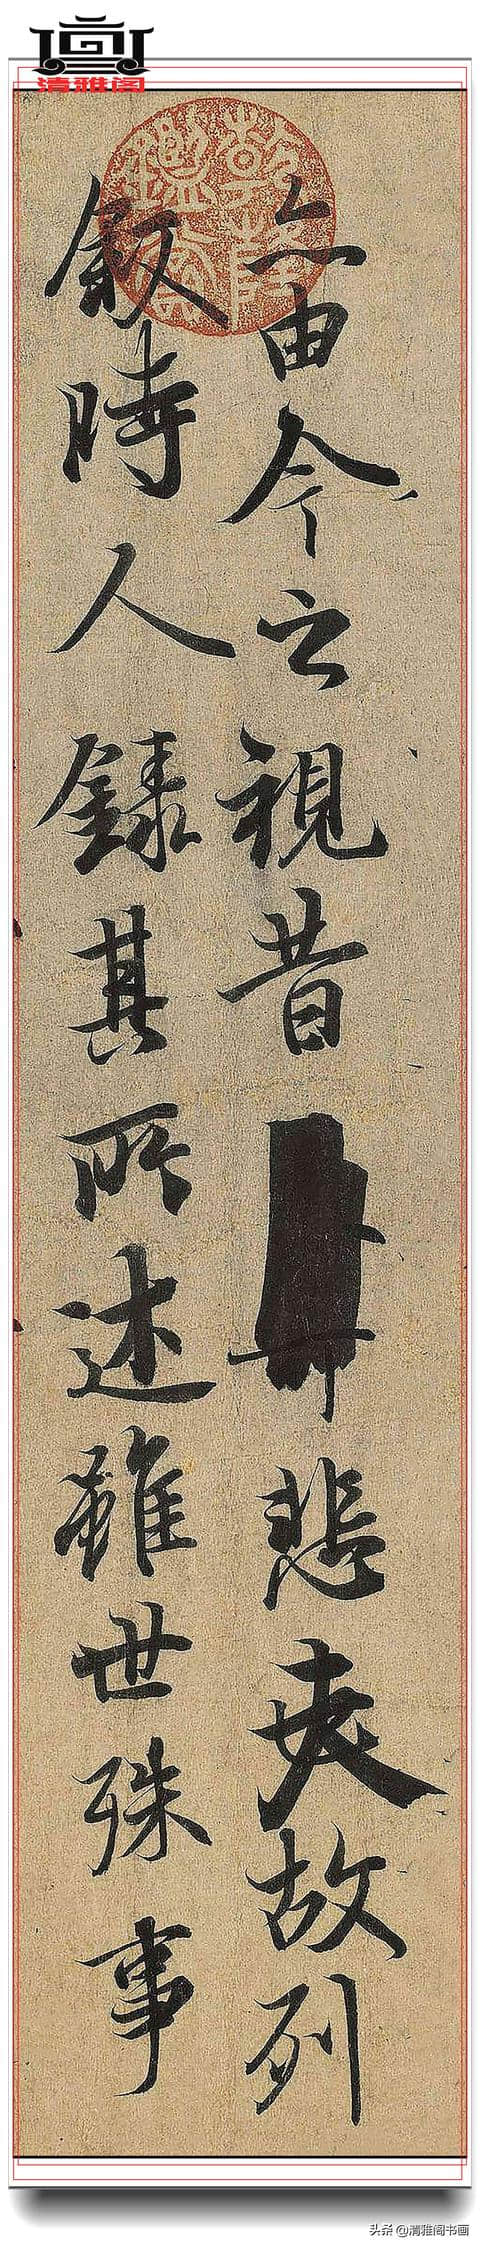 清雅阁
乾隆
鑑賞
亦由今之視昔悲夫故列
叙時人録其所述雖世殊事
头条 @清雅阁书画